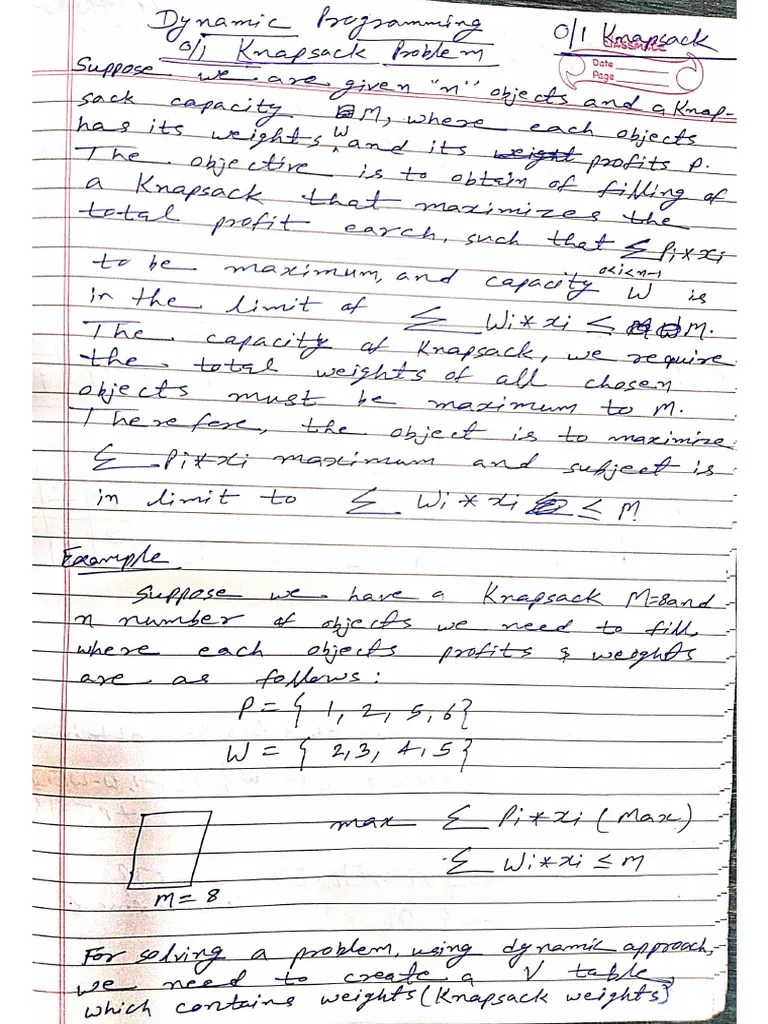 Dynamic Programming
0/1 Knapsack
0/1 Knapsack Problem
CLASSMATE
Date
Page
Suppose we are given "n" objects and a Knap-
sack capacity M, where each objects
has its weights W and its weight profits P.
The objective is to obtain of filling of
a Knapsack that maximizes the
total profit earch, such that ∑ Pi*xi
0<i<n-1
to be maximum, and capacity W is
in the limit of ∑ Wi*xi ≤ M.
The capacity of Knapsack, we require
the total weights of all chosen
objects must be maximum to M.
Therefore, the object is to maximize
∑ Pi*xi maximum and subject is
in limit to ∑ Wi*xi ≤ M
Example
Suppose we have a Knapsack M=8 and
n number of objects we need to fill,
where each objects profits & weights
are as follows:
P = { 1, 2, 5, 6}
W = { 2, 3, 4, 5}
max ∑ Pi*xi (Max)
∑ Wi*xi ≤ M
M = 8
For solving a problem, using dynamic approach,
we need to create a V table,
which contains weights (Knapsack weights)